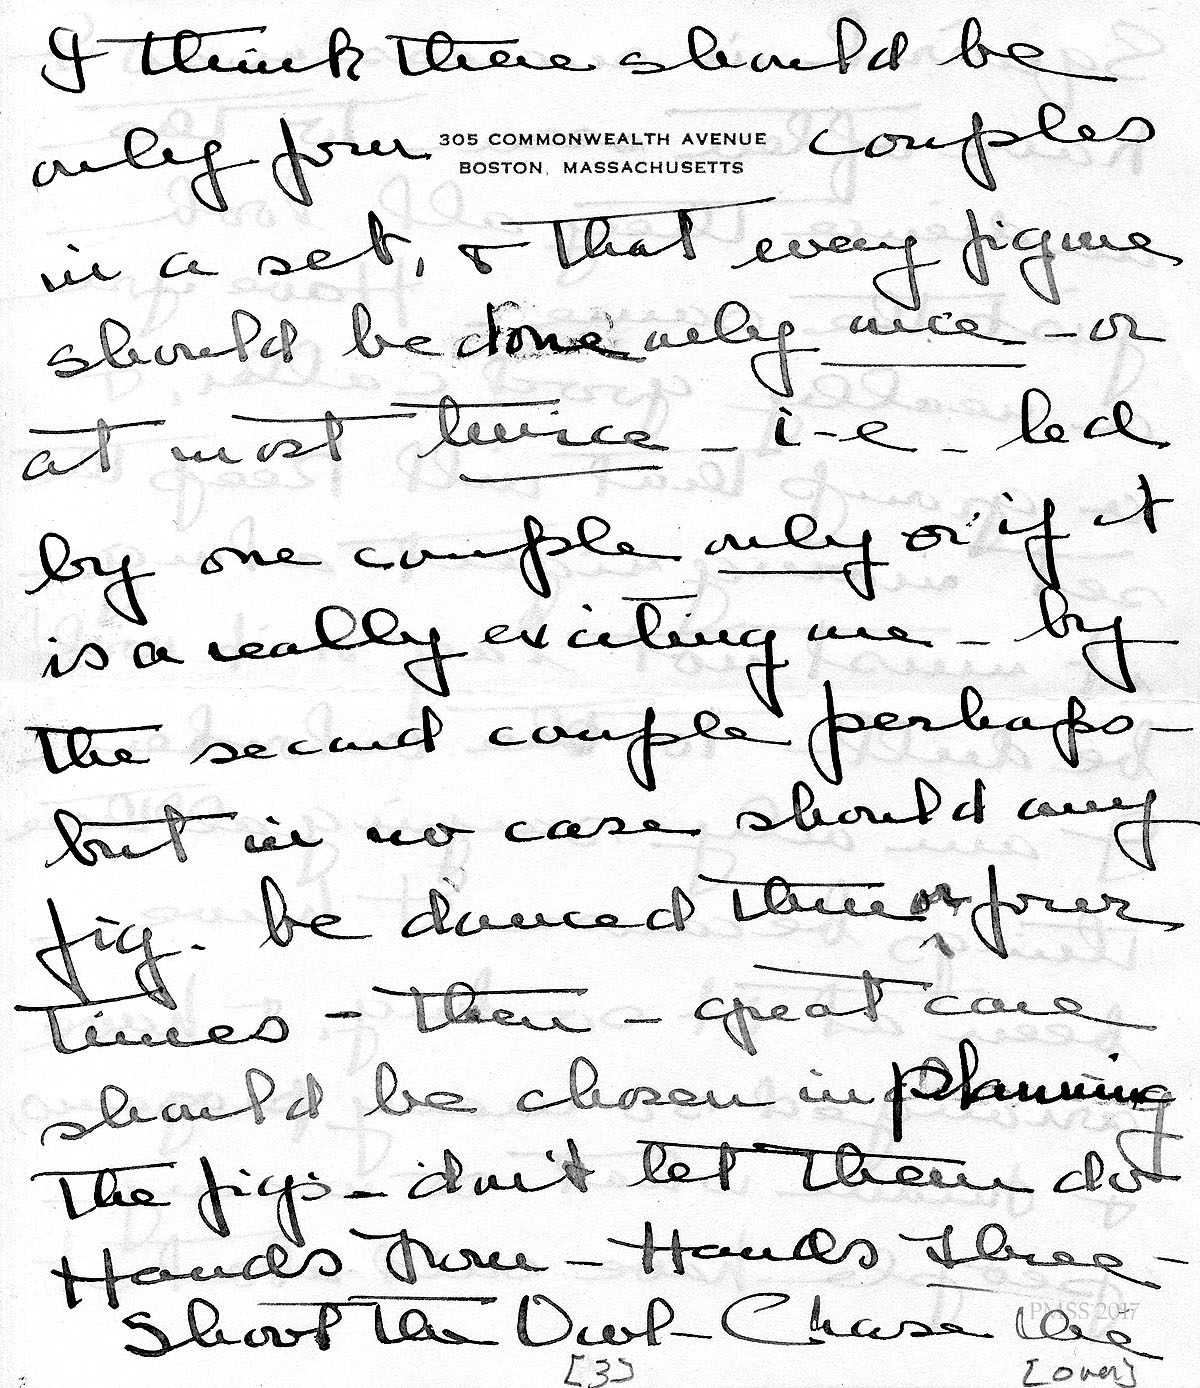 I think there should be
only four 305 COMMONWEALTH AVENUE couples
BOSTON, MASSACHUSETTS
in a set, & that every figure
should be done only once - or
at most twice - i-e - led
by one couple only or if it
is a really exciting one - by
the second couple perhaps -
but in no case should any
fig. be danced three or four
times - then - great care
should be chosen in planning
the figs - don't let them do
Hands Four - Hands three -
Shoot the Owl - Chase the
[3] [over]
PMSS 2017